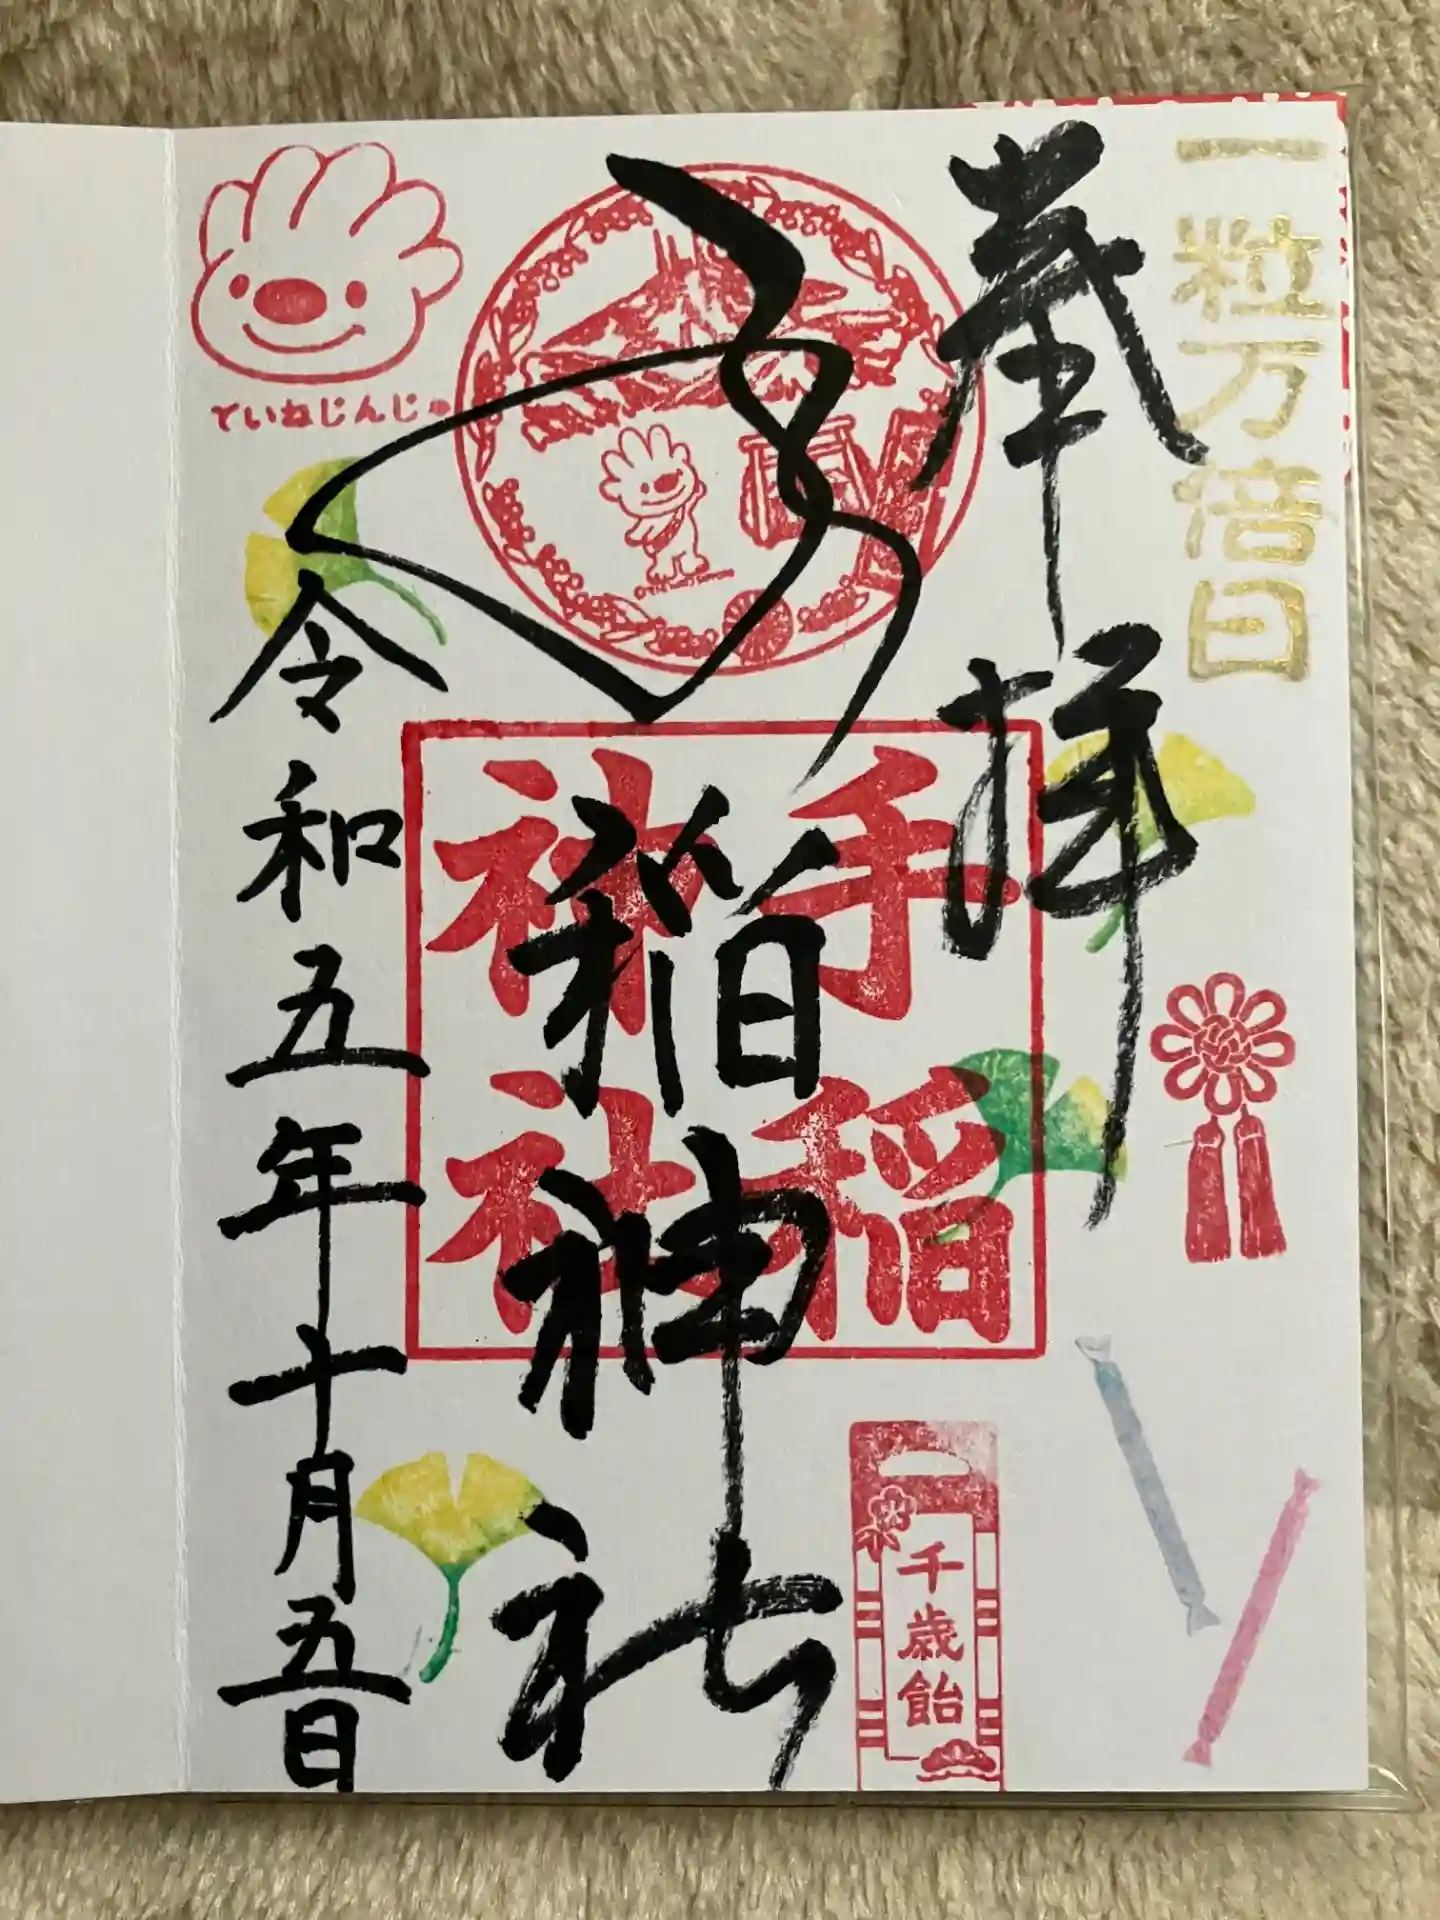 一粒万倍日
奉拝
手稲神社
手稲
神社
ていねじんじゃ
令和五年十月五日
千歳飴